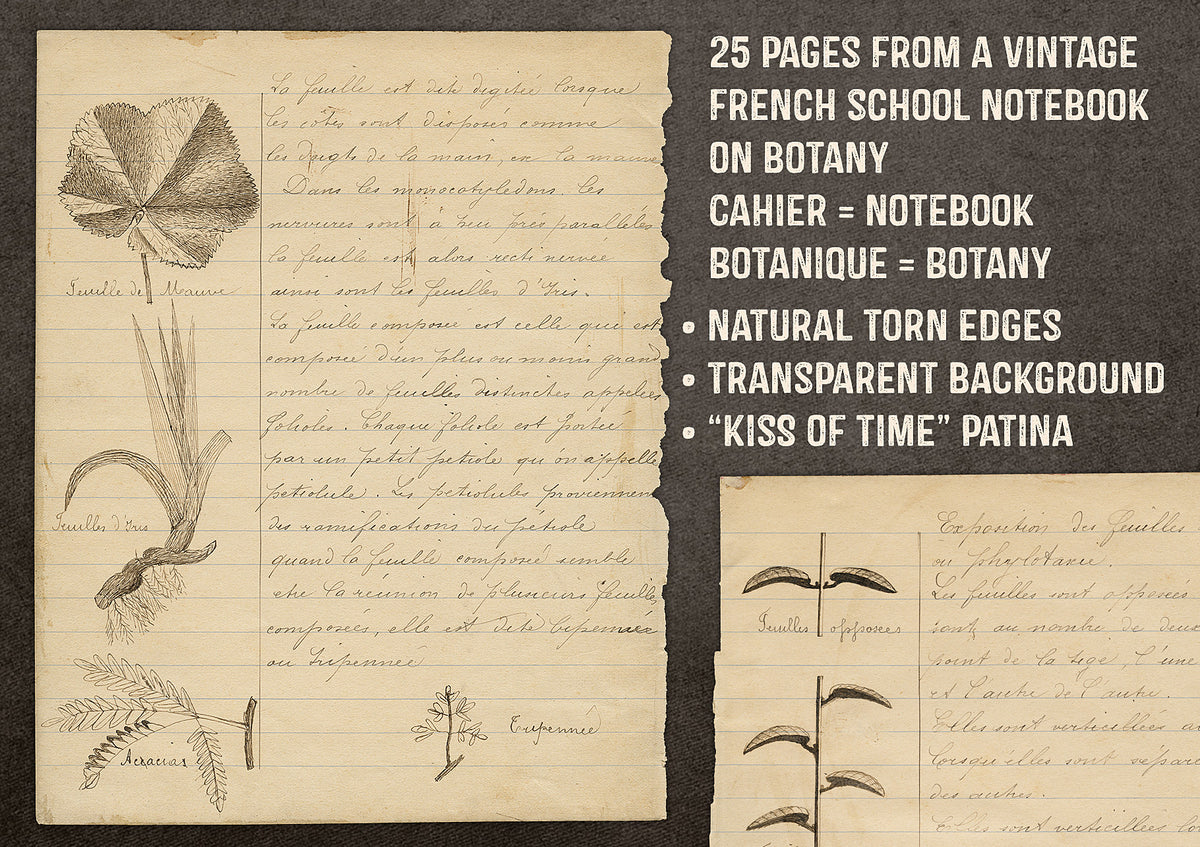 La feuille est dite digitée lorsque
les côtes sont disposés comme
les doigts de la main, ex la mauve
Dans les monocotyledons, les
nervures sont à peu près parallèles
la feuille est alors recti nervée
ainsi sont les feuilles d'Iris.
La feuille composée est celle qui est
composée d'un plus ou moins grand
nombre de feuilles distinctes appelées
folioles. Chaque foliole est portée
par un petit petiole qu'on appelle
petiolule. Les petiolules proviennent
des ramifications du pétiole
quand la feuille composée semble
etre la réunion de plusieurs feuilles
composées, elle est dite bipennée
ou tripennée
Feuille de Mauve
Feuilles d'Iris
Acacias
Tripennée
25 PAGES FROM A VINTAGE
FRENCH SCHOOL NOTEBOOK
ON BOTANY
CAHIER = NOTEBOOK
BOTANIQUE = BOTANY
• NATURAL TORN EDGES
• TRANSPARENT BACKGROUND
• “KISS OF TIME” PATINA
Exposition des feuilles
ou phylotaxie.
Les feuilles sont opposées
sont au nombre de deux
point de la tige, l'une
et l'autre de l'autre.
Elles sont verticillées
lorsqu'elles sont séparé
des autres.
Elles sont verticillées lo
Feuilles opposées